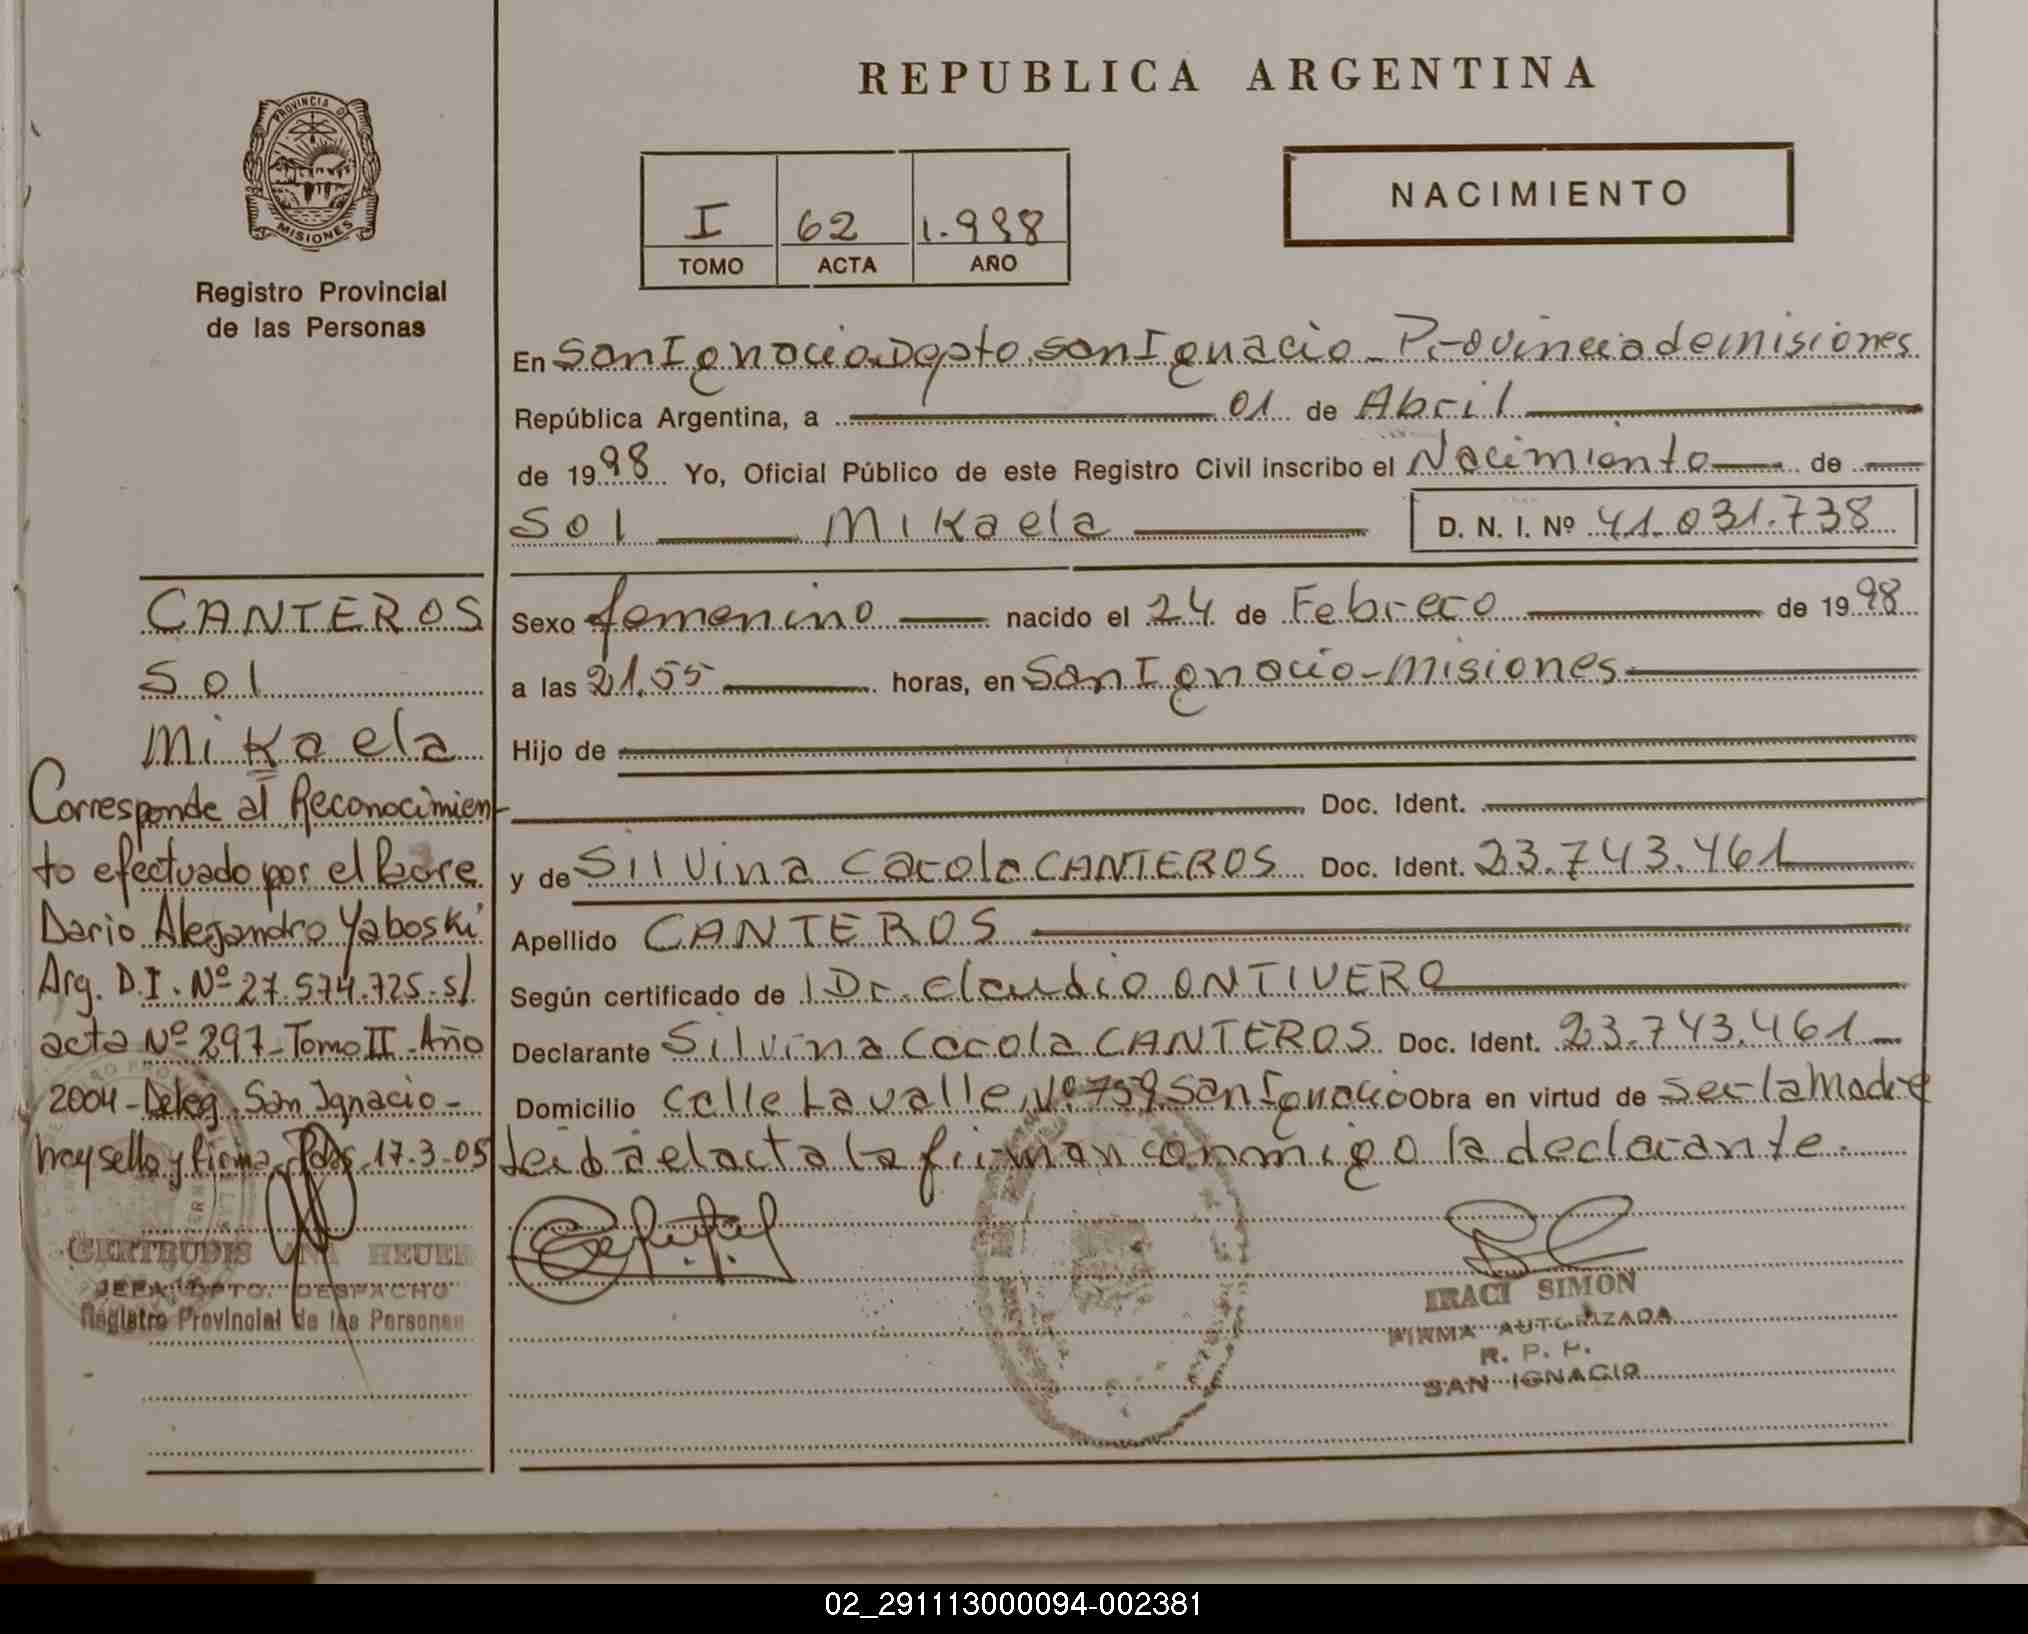 REPUBLICA ARGENTINA
PROVINCIA D
MISIONES
Registro Provincial
de las Personas
I 62 1.998
TOMO ACTA AÑO
NACIMIENTO
En San Ignacio Depto. San Ignacio - Provincia de misiones
República Argentina, a 01 de Abril
de 1998 Yo, Oficial Público de este Registro Civil inscribo el Nacimiento de
Sol Mikaela D. N. I. Nº 41.031.738
CANTEROS
Sol
Mikaela
Sexo femenino nacido el 24 de Febrero de 1998
a las 21.55 horas, en San Ignacio - Misiones
Hijo de
Doc. Ident.
y de Silvina Carola CANTEROS Doc. Ident. 23.743.461
Apellido CANTEROS
Según certificado de Dr. Claudio ONTIVERO
Declarante Silvina Carola CANTEROS Doc. Ident. 23.743.461
Domicilio Calle Lavalle Nº 759 San Ignacio Obra en virtud de Ser la Madre
Leida el acta la firman conmigo la declarante.
Corresponde al Reconocimien-
to efectuado por el
Dario Alejandro Yaboski
Arg. D.I. Nº 27.574.725. s/
acta Nº 297 - Tomo II - Año
2004 - Deleg. San Ignacio -
hay sello y firma. Pdas. 17-3-05
GERTRUDIS HEUER
JEFA DPTO. DESPACHO
Registro Provincial de las Personas
IRACI SIMON
FIRMA AUTORIZADA
R. P. P.
SAN IGNACIO
02_291113000094-002381